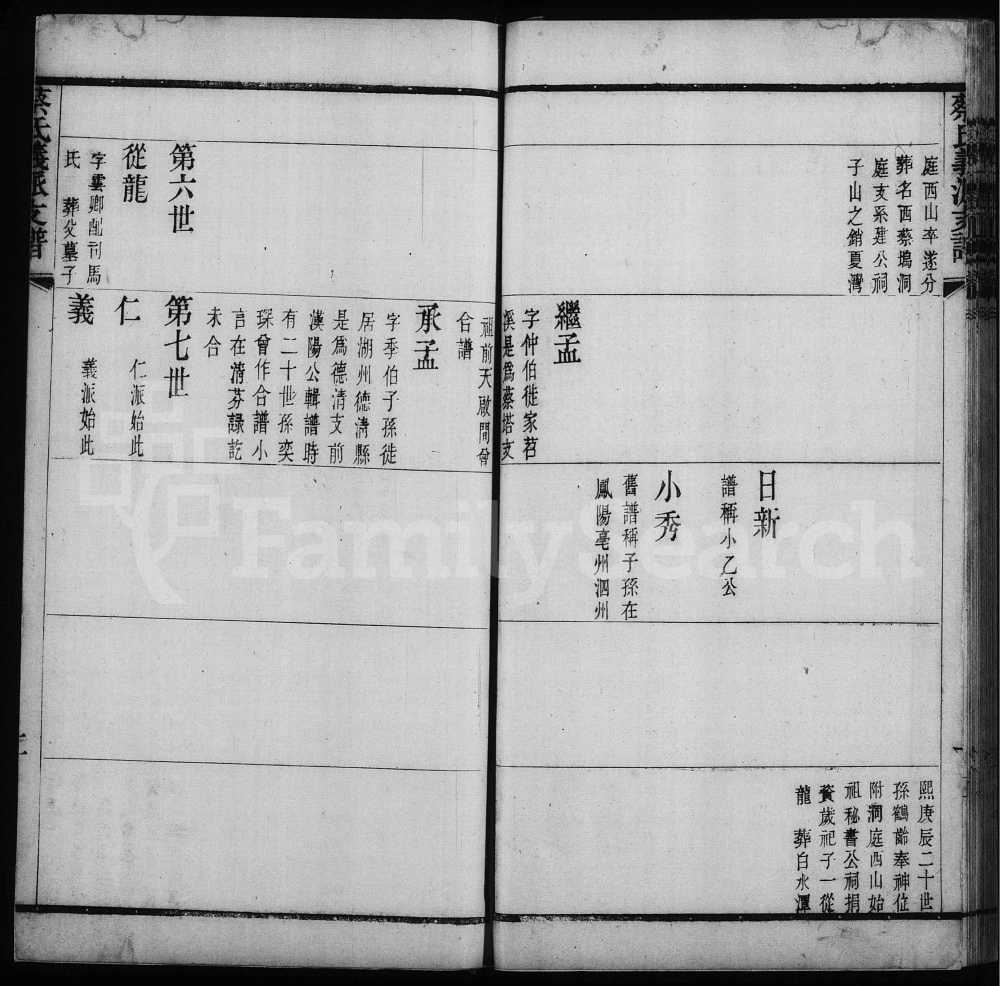 蔡氏義派支譜
庭西山卒遂分
葬名西蔡塢洞
庭支系建公祠
子山之銷夏灣
繼孟
字仲伯徙家苕
溪是爲蔡塔支
日新
譜稱小乙公
小秀
舊譜稱子孫在
鳳陽亳州泗州
熙庚辰二十世
孫鶴齡奉神位
附洞庭西山始
祖秘書公祠捐
資歲祀子一從
龍 葬白水潭
祖前天啟間曾
合譜
承孟
字季伯子孫徙
居湖州德清縣
是爲德清支前
漢陽公輯譜時
有二十世孫奕
琛曾作合譜小
言在清芬錄訖
未合
第六世
從龍
字雲卿配司馬
氏 葬父墓子
第七世
仁 仁派始此
義 義派始此
蔡氏義派支譜
FamilySearch